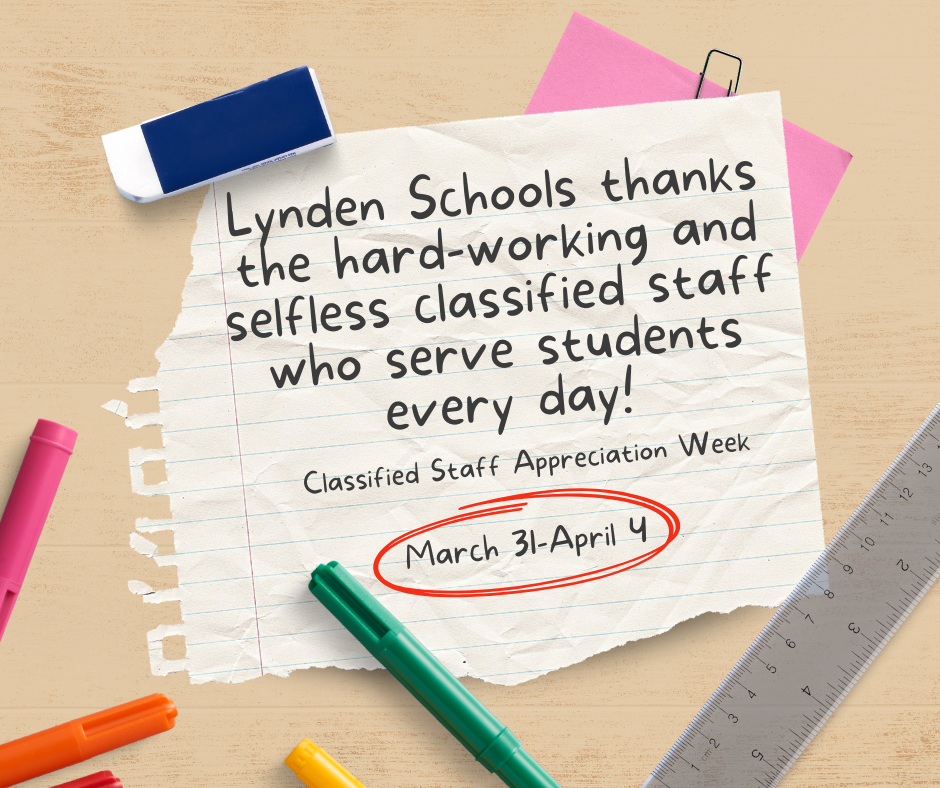 Lynden Schools thanks
the hard-working and
selfless classified staff
who serve students
every day!
Classified Staff Appreciation Week
March 31-April 4
1 2 3 4 5 6 7 8 9 10 11 12 13
cm
2 3 4 5